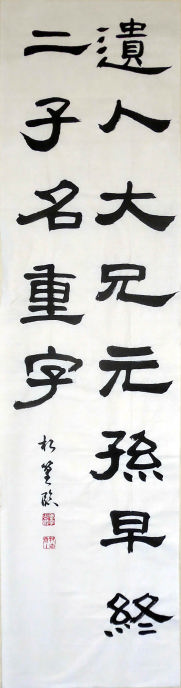 遺人大兄元孫早終
二子名重字